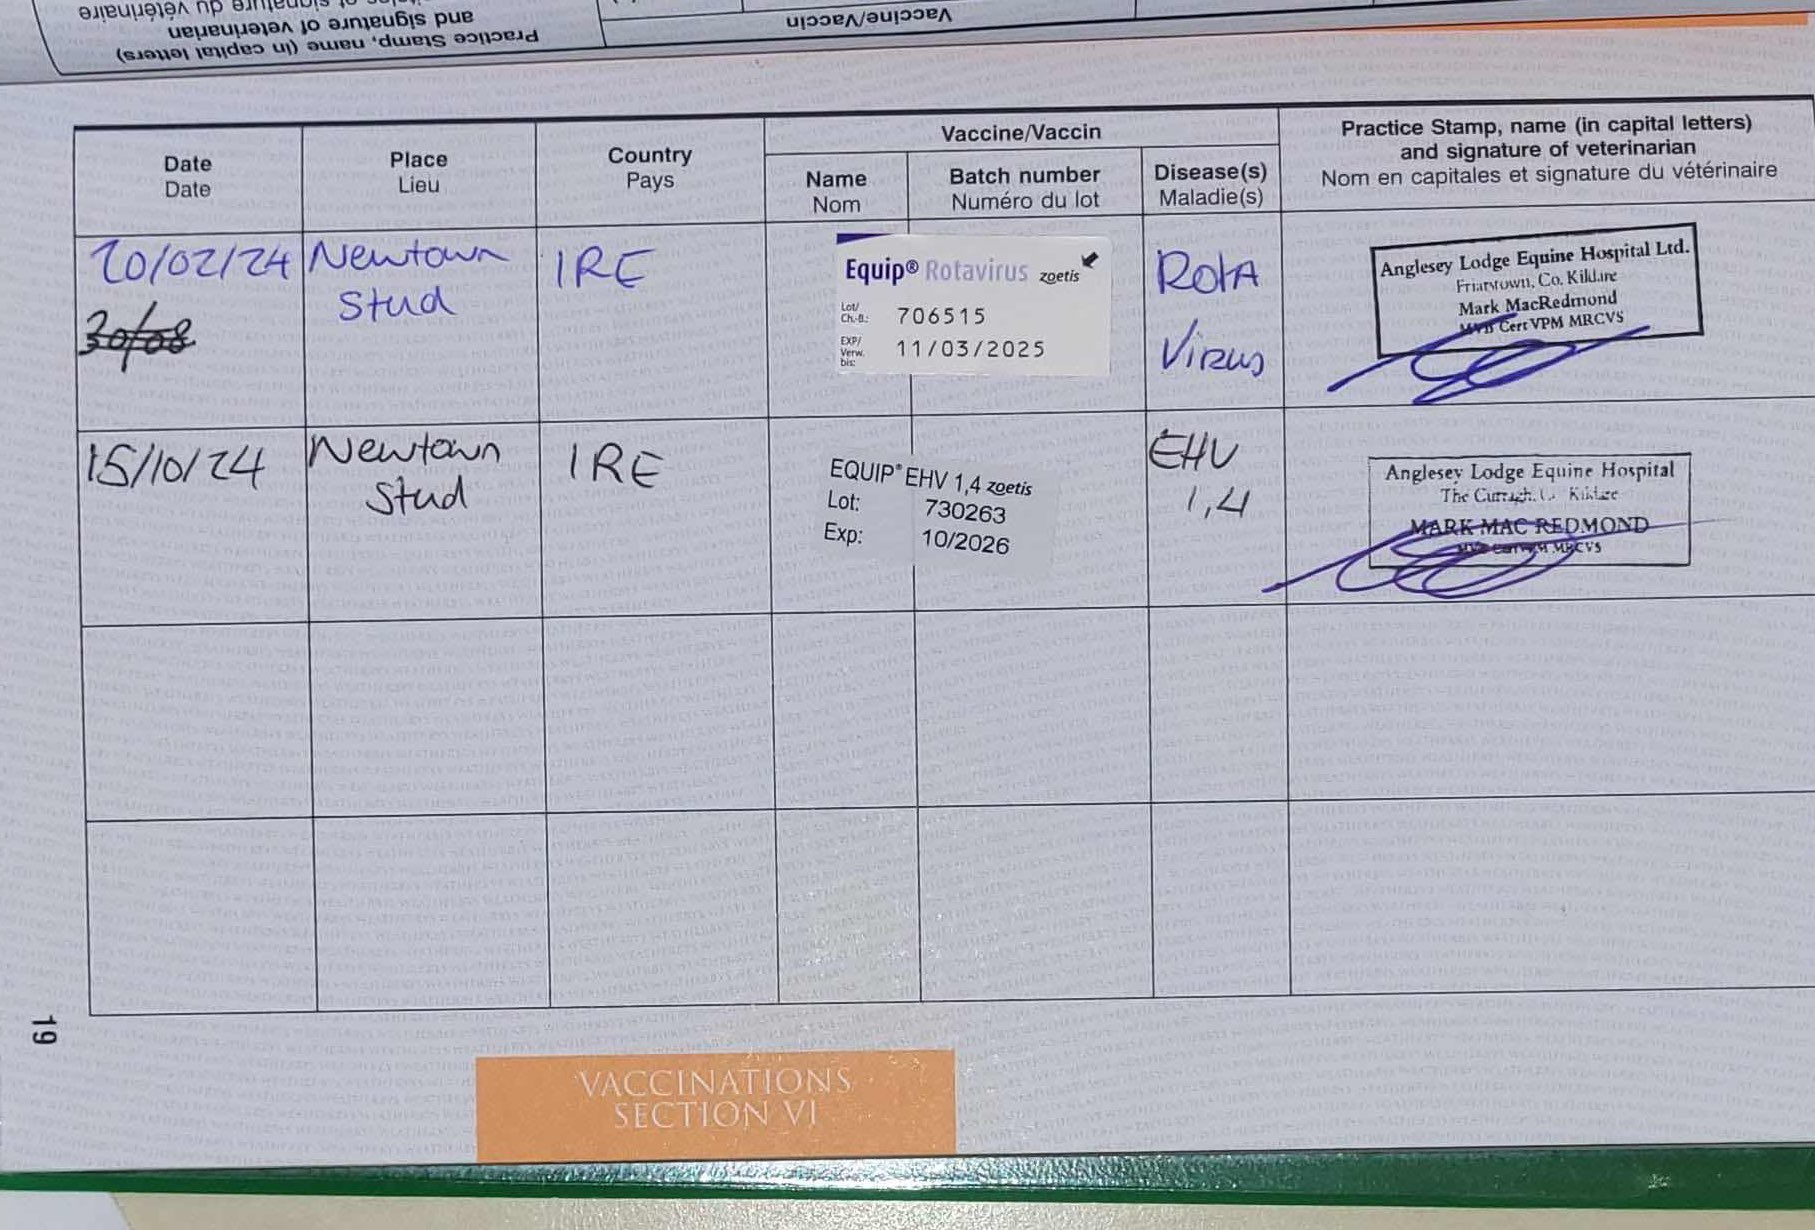 Practice Stamp, name (in capital letters)
and signature of veterinarian
Vaccine/Vaccin
Date
Date
Place
Lieu
Country
Pays
Vaccine/Vaccin
Name
Nom
Batch number
Numéro du lot
Disease(s)
Maladie(s)
Practice Stamp, name (in capital letters)
and signature of veterinarian
Nom en capitales et signature du vétérinaire
20/02/24
30/08
Newtown
Stud
IRE
Equip® Rotavirus zoetis
Lot/
Ch.-B.: 706515
EXP/
Verw.
bis: 11/03/2025
Rota
Virus
Anglesey Lodge Equine Hospital Ltd.
Friarstown, Co. Kildare
Mark MacRedmond
MVB Cert VPM MRCVS
15/10/24
Newtown
Stud
IRE
EQUIP® EHV 1,4 zoetis
Lot: 730263
Exp: 10/2026
EHV
1,4
Anglesey Lodge Equine Hospital
The Curragh, Co. Kildare
MARK MAC REDMOND
MRCVS
19
VACCINATIONS
SECTION VI